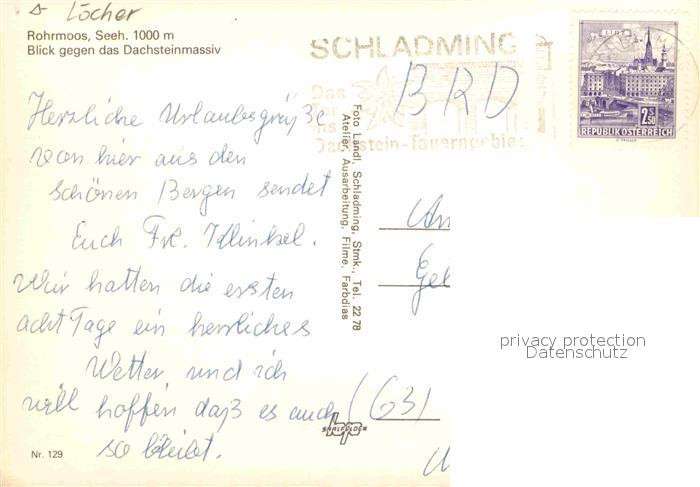 Löcher
Rohrmoos, Seeh. 1000 m
Blick gegen das Dachsteinmassiv
SCHLADMING
Das
Tor
ins
Dachstein-Tauerngebiet
BRD
LINZ
2.50
REPUBLIK ÖSTERREICH
Herzliche Urlaubsgrüße
von hier aus den
schönen Bergen sendet
Euch Frl. Klinkel.
Wir hatten die ersten
acht Tage ein herrliches
Wetter und ich
will hoffen daß es auch
so bleibt.
Foto Landl, Schladming, Stmk., Tel. 22 78
Atelier, Ausarbeitung, Filme, Farbdias
An
(63)
privacy protection
Datenschutz
SAALFELDEN
Nr. 129